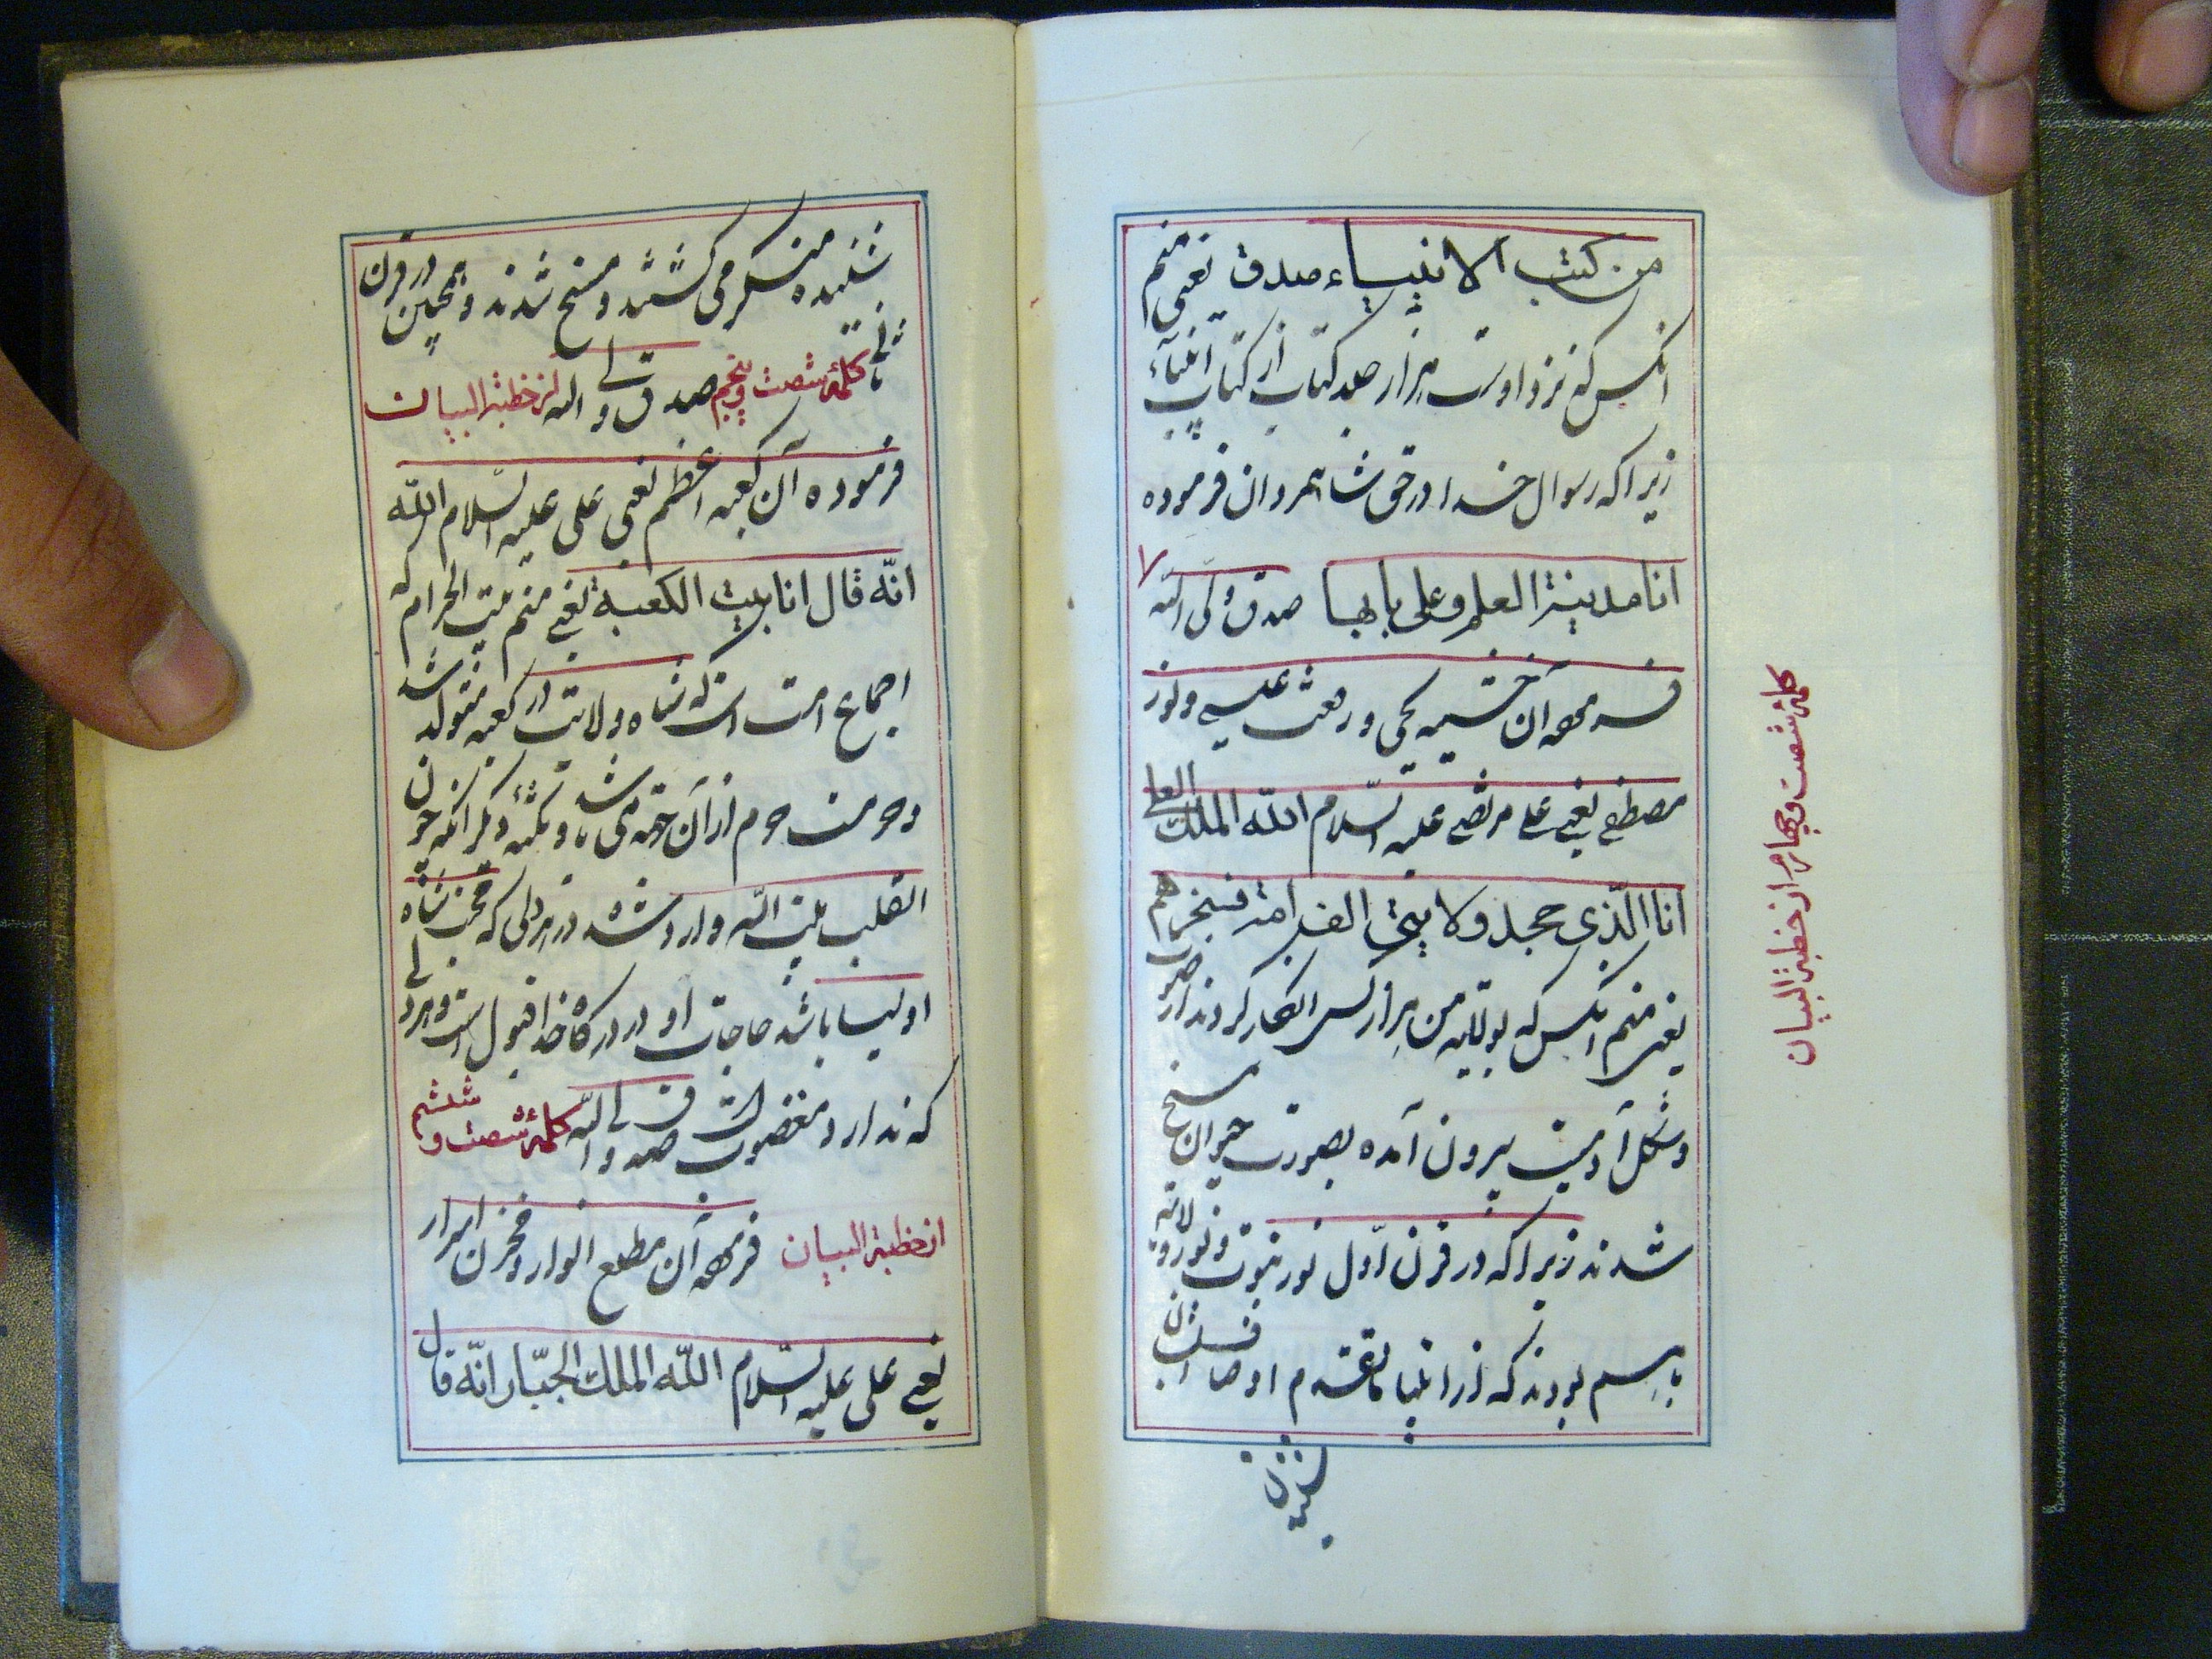 من كتب الانبياء صدق یعنی منم
انکس که نزد اوست هزار صد کتاب از کتاب انبیآء
زیرا که رسوال خدا در حق شاهمردان فرموده
انا مدينة العلم و علی بابها صدق ولی الله
فرموده آن چشمه یحیی و رفعت عیسی و نور
مصطفی یعنی علی مرتضی علیه السّلام الله الملك العلی
انا الّذی جحد ولايتی الف امة فسخرهم
یعنی منم انکس که بولایه من هزار کس انکار کردند از صورت
و شکل آدمیت بیرون آمده بصورت حیوان مسخ
شدند زیرا که در قرن اوّل نور نبوت و نور ولایه
باسم بودند که از انبیا ما تقدم اوصافشان
شنیدن
کلمهٔ شصت و چهارم از خطبة البیان
شنیده منکر می کشتند و مسخ شدند و همچنین در قرن
ثانی صدق ولی الله کلمهٔ شصت و پنجم از خطبة البیان
فرموده آن کعبه اعظم یعنی علی علیه السّلام الله
انّه قال انا بيت الكعبة یعنی منم بیت الحرام که
اجماع امت است که شاه ولایت در کعبه متولد شد
و حرمت حرم از آن جهة می باشد و نکتهٔ دیگر انکه چون
القلب بیت الله وارد شده در هر دلی که محبت شاه
اولیا باشد حاجات او در درکاه خدا قبول است و هر دلی
که ندارد مغضوب است صدق ولی الله کلمهٔ شصت و ششم
از خطبة البیان فرموده آن مطلع انوار و مخزن اسرار
یعنی علی علیه السّلام الله الملك الجبّار انّه قال